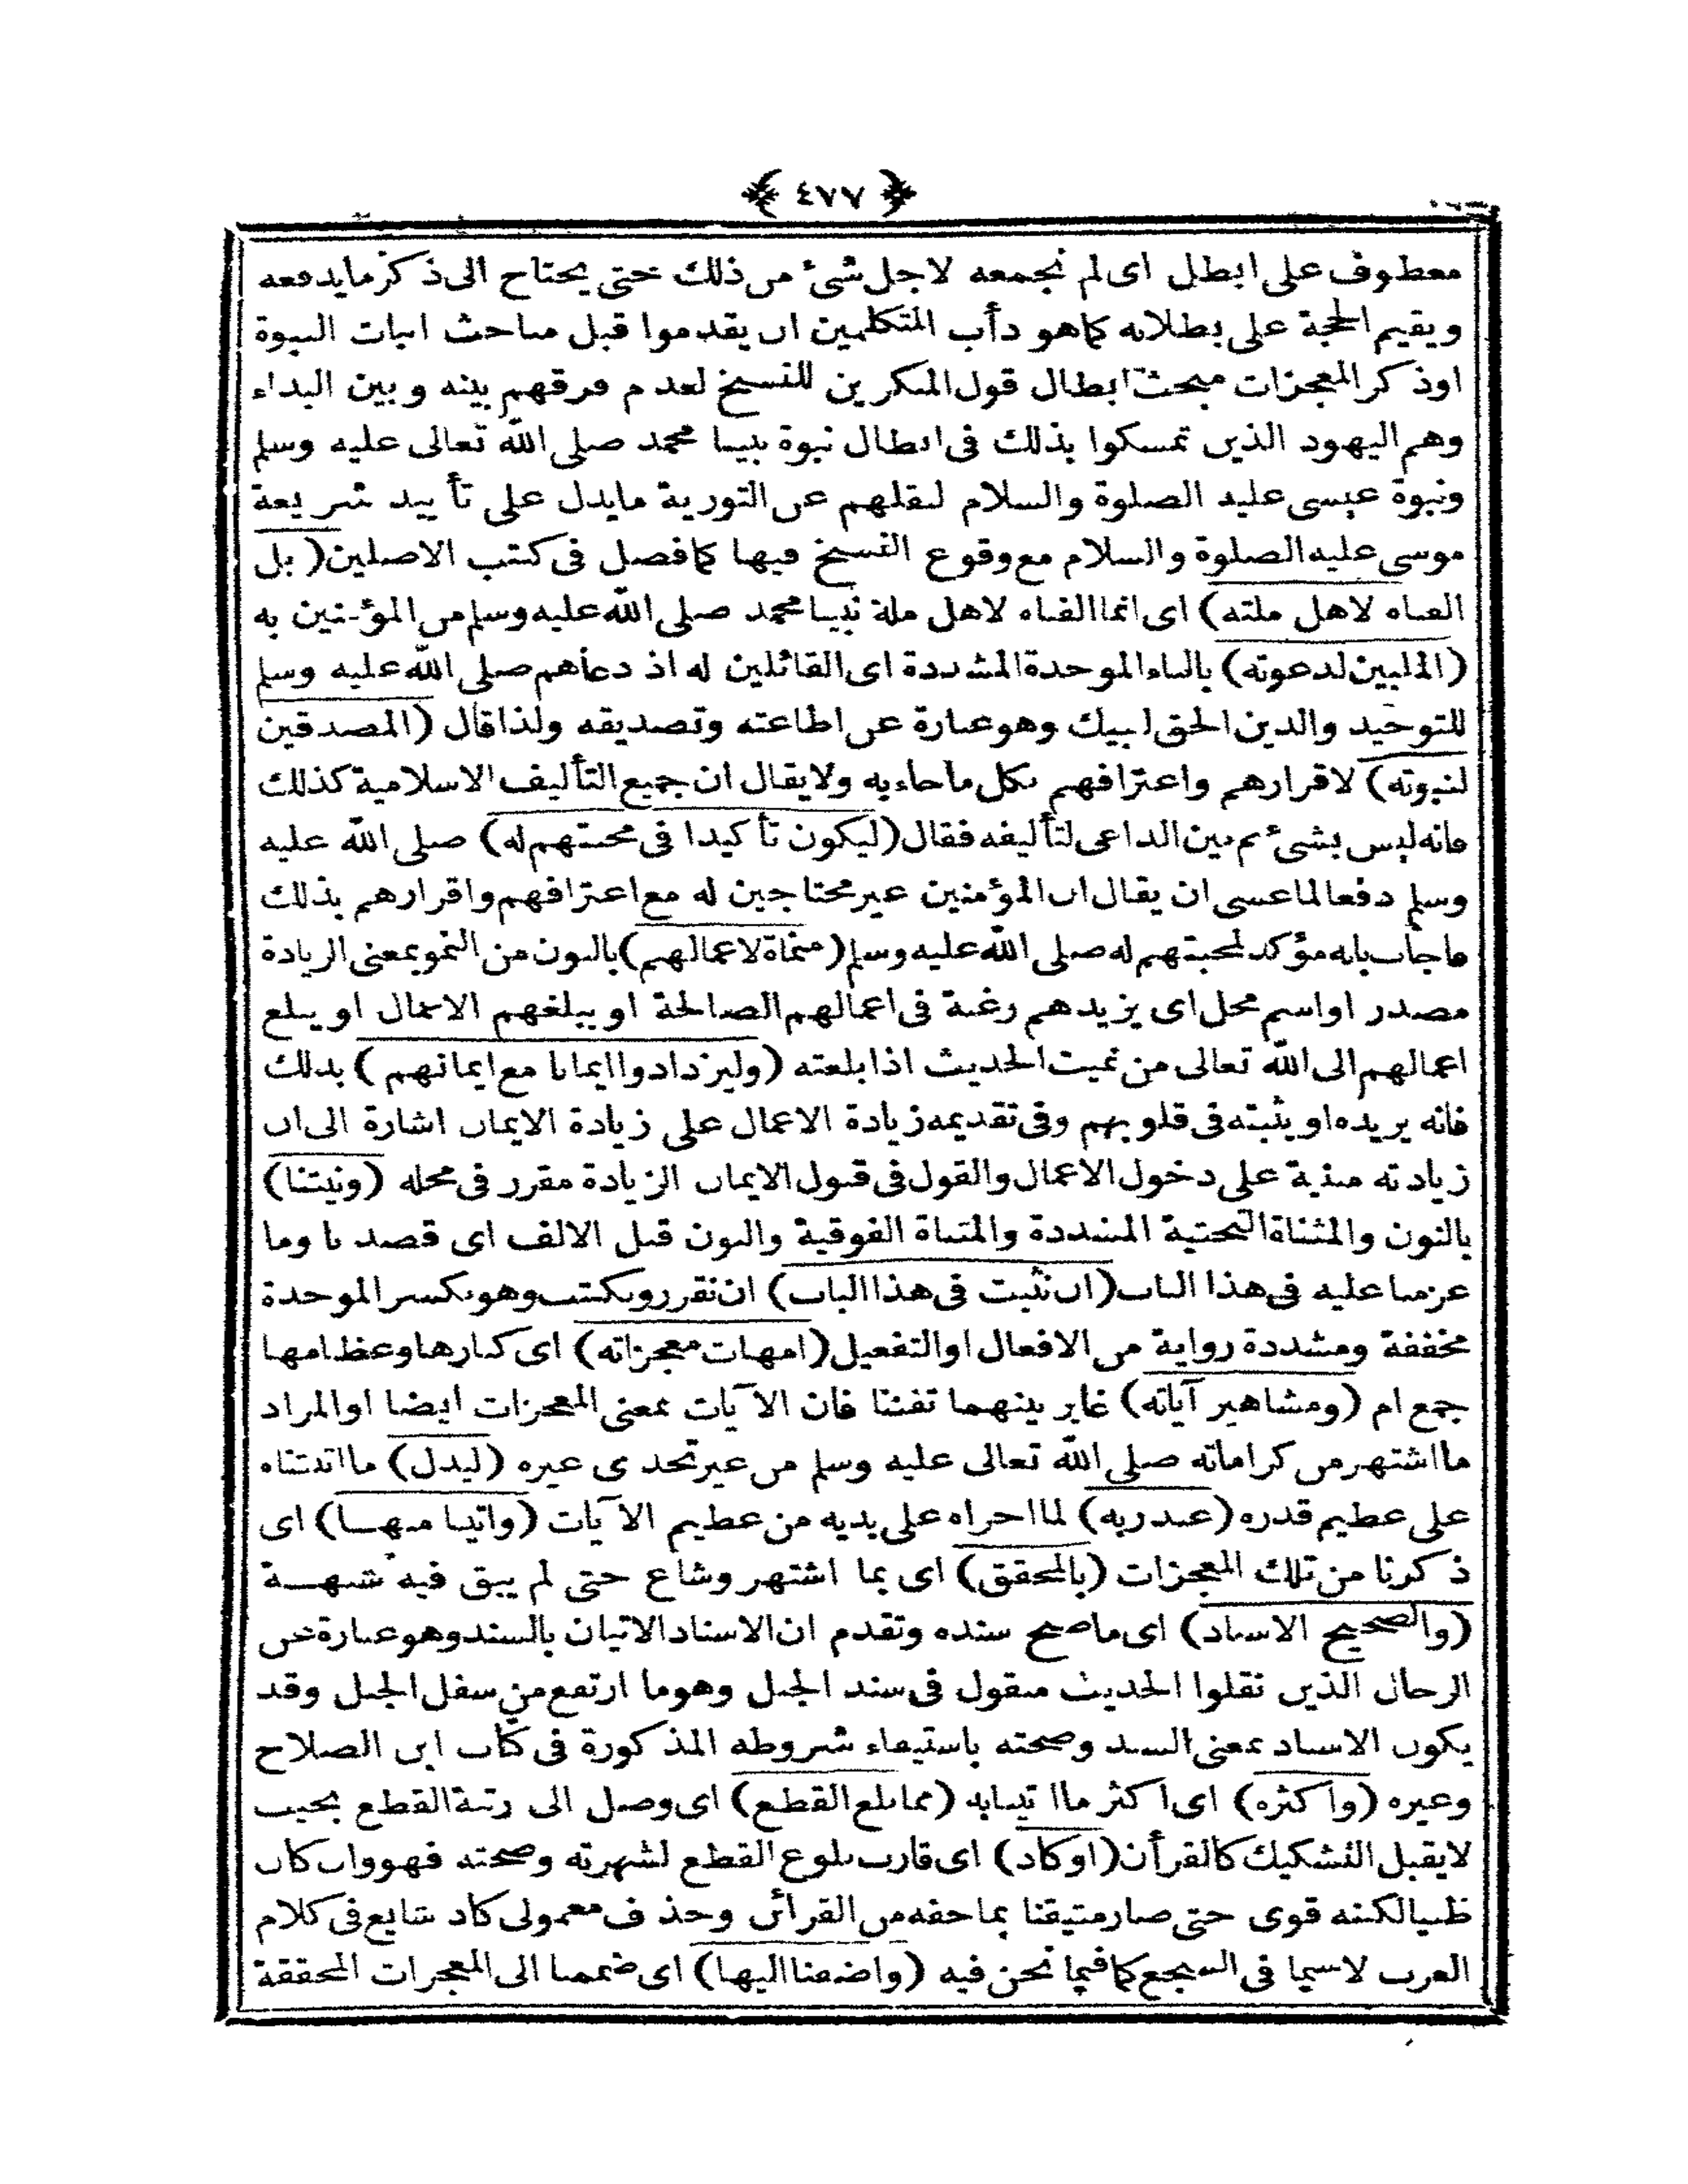 ﴿ ٤٧٧ ﴾
معطوف على ابطل اى لم نجمعه لاجل شئ من ذلك حتى يحتاج الى ذكر ما يدفعه
ويقيم الحجة على بطلانه كما هو دأب المتكلمين ان يقدموا قبل مباحث اثبات النبوة
اوذكر المعجزات مبحث ابطال قول المنكرين للنسخ لعدم فرقهم بينه وبين البداء
وهم اليهود الذين تمسكوا بذلك فى ابطال نبوة نبينا محمد صلى الله تعالى عليه وسلم
ونبوة عيسى عليه الصلوة والسلام لنقلهم عن التورية مايدل على تأييد شريعة
موسى عليه الصلوة والسلام مع وقوع النسخ فيها كما فصل فى كتب الاصلين (بل
الفناه لاهل ملته) اى انما الفناه لاهل ملة نبينا محمد صلى الله عليه وسلم من المؤمنين به
(الملبين لدعوته) بالباء الموحدة المشددة اى القائلين له اذ دعاهم صلى الله عليه وسلم
للتوحيد والدين الحق لبيك وهو عبارة عن اطاعته وتصديقه ولذا قال (المصدقين
لنبوته) لاقرارهم واعترافهم بكل ماجاء به ولايقال ان جميع التأليف الاسلامية كذلك
فانه ليس بشئ ثم بين الداعى لتأليفه فقال (ليكون تأكيدا فى محبتهم له) صلى الله عليه
وسلم دفعا لما عسى ان يقال ان المؤمنين غير محتاجين له مع اعترافهم واقرارهم بذلك
فاجاب بانه مؤكد لمحبتهم له صلى الله عليه وسلم (منماة لاعمالهم) بالنون من النمو بمعنى الزيادة
مصدر اواسم محل اى يزيدهم رغبة فى اعمالهم الصالحة او يبلغهم الاعمال او يبلغ
اعمالهم الى الله تعالى من نميت الحديث اذا بلغته (وليزدادوا ايمانا مع ايمانهم) بذلك
فانه يزيده او يثبته فى قلوبهم وفى تقديمه زيادة الاعمال على زيادة الايمان اشارة الى ان
زيادته مبنية على دخول الاعمال والقول فى قبول الايمان الزيادة مقرر فى محله (ونيتنا)
بالنون والمثناة التحتية المشددة والمثناة الفوقية والنون قبل الالف اى قصدنا وما
عزمنا عليه فى هذا الباب (ان نثبت فى هذا الباب) ان نقرر ونكتب وهو بكسر الموحدة
مخففة ومشددة رواية من الافعال او التفعيل (امهات معجزاته) اى كبارها وعظامها
جمع ام (ومشاهير آياته) غاير بينهما تفننا فان الآيات بمعنى المعجزات ايضا او المراد
ما اشتهر من كراماته صلى الله تعالى عليه وسلم من غير تحدى غيره (ليدل) ما اثبتناه
على عظيم قدره (عند ربه) لما اجراه على يديه من عظيم الآيات (واتينا منها) اى
ذكرنا من تلك المعجزات (بالمحقق) اى بما اشتهر وشاع حتى لم يبق فيه شبهة
(والصحيح الاسناد) اى ماصح سنده وتقدم ان الاسناد الاتيان بالسند وهو عبارة عن
الرجال الذين نقلوا الحديث منقول فى سند الجبل وهو ما ارتفع من سفل الجبل وقد
يكون الاسناد بمعنى السند وصحته باستيفاء شروطه المذكورة فى كتاب ابن الصلاح
وغيره (واكثره) اى اكثر ما اتينابه (مما بلغ القطع) اى وصل الى رتبة القطع بحيث
لايقبل التشكيك كالقرأن (اوكاد) اى قارب بلوغ القطع لشهرته وصحته فهو وان كان
ظنيا لكنه قوى حتى صار متيقنا بما حفه من القرائن وحذف معمولى كاد شايع فى كلام
العرب لاسيما فى السجع كما فيما نحن فيه (واضفنا اليها) اى ضممنا الى المعجزات المحققة